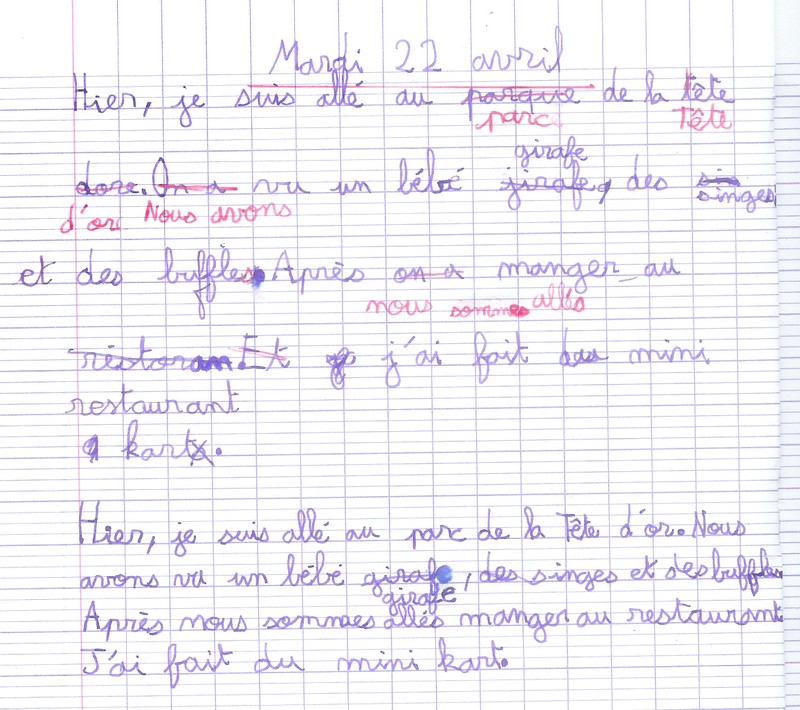 Mardi 22 avril
Hier, je suis allé au parque de la tête
parc Tête
girafe
dore. On a vu un bébé jirafe, des singes
d'or Nous avons
et des buffles. Après on a manger au
nous sommes allés
réstoran Et j'ai fait du mini
restaurant
kart.
Hier, je suis allé au parc de la Tête d'or. Nous
avons vu un bébé girafe, des singes et des buffles
girafe
Après nous sommes allés manger au restaurant
J'ai fait du mini kart.